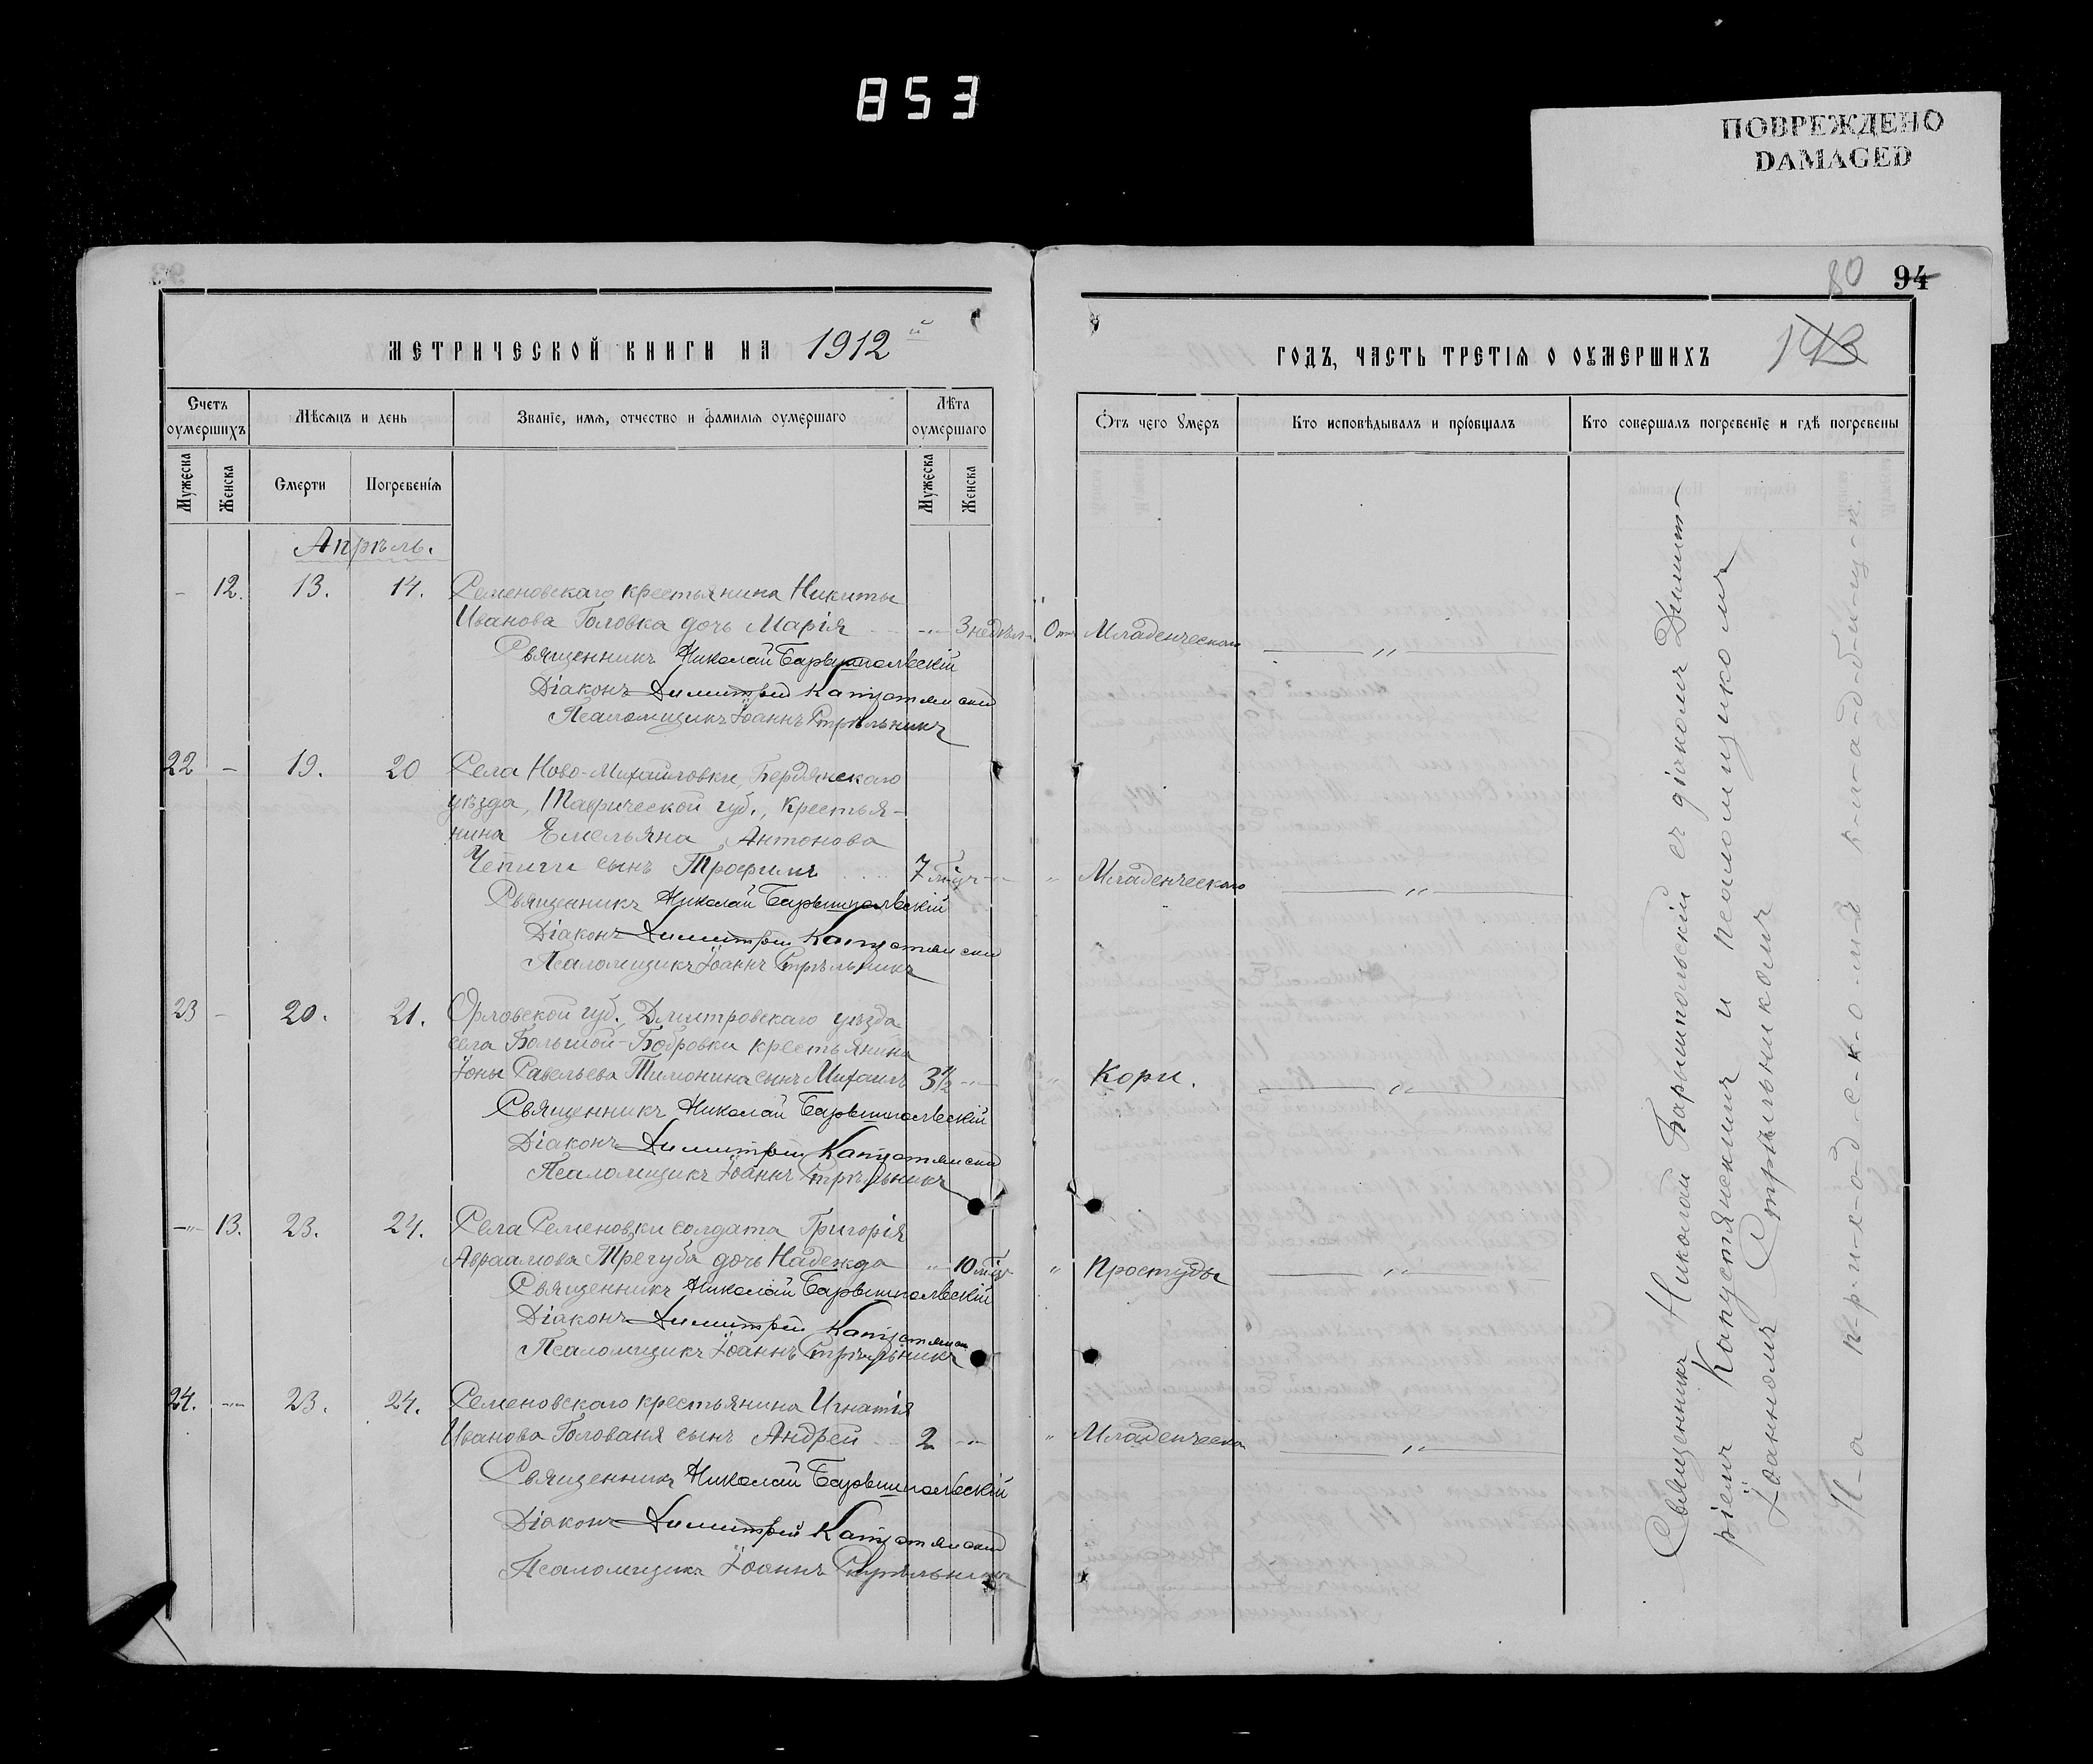 853
ПОВРЕЖДЕНО
DAMAGED
80 94
МЕТРИЧЕСКОЙ КНИГИ НА 1912 й
ГОДЪ, ЧАСТЬ ТРЕТІЯ О ОУМЕРШИХЪ 143
Счетъ оумершихъ
Мѣсяцъ и день
Званіе, имя, отчество и фамилія оумершаго
Лѣта оумершаго
Отъ чего умеръ
Кто исповѣдывалъ и пріобщалъ
Кто совершалъ погребеніе и гдѣ погребены
Мужеска
Женска
Смерти
Погребенія
Мужеска
Женска
Апрѣль.
- 12. 13. 14. Семеновскаго крестьянина Никиты
Иванова Головка дочь Марія -"- 3 недѣл. Отъ Младенческаго — " —
Священникъ Николай Барышпольскій
Діаконъ Димитрій Капустянскій
Псаломщикъ Іоаннъ Стрѣльникъ
22 - 19. 20 Села Ново-Михайловки, Бердянскаго
уѣзда, Таврической губ., крестья-
нина Емельяна Антонова
Чепиги сынъ Трофимъ 7 мѣс. -"- " Младенческаго — " —
Священникъ Николай Барышпольскій
Діаконъ Димитрій Капустянскій
Псаломщикъ Іоаннъ Стрѣльникъ
23 - 20. 21. Орловской губ. Дмитровскаго уѣзда
села Большой-Бобровки крестьянина
Іоны Савельева Тимонина сынъ Михаилъ 3½ -"- " Кори. — " —
Священникъ Николай Барышпольскій
Діаконъ Димитрій Капустянскій
Псаломщикъ Іоаннъ Стрѣльникъ
-"- 13. 23. 24. Села Семеновки солдата Григорія
Авраамова Трегуба дочь Надежда " 10 мѣс. " Простуды — " —
Священникъ Николай Барышпольскій
Діаконъ Димитрій Капустянскій
Псаломщикъ Іоаннъ Стрѣльникъ
24. -"- 23. 24. Семеновскаго крестьянина Игнатія
Иванова Голованя сынъ Андрей 2 -"- " Младенческа — " —
Священникъ Николай Барышпольскій
Діаконъ Димитрій Капустянскій
Псаломщикъ Іоаннъ Стрѣльникъ
Священникъ Николай Барышпольскій съ діакономъ Димит-
ріемъ Капустянскимъ и псаломщикомъ
Іоанномъ Стрѣльникомъ
Н-а п-р-и-х-о-д-с-к-о-м-ъ к-л-а-д-б-и-щ-ѣ.